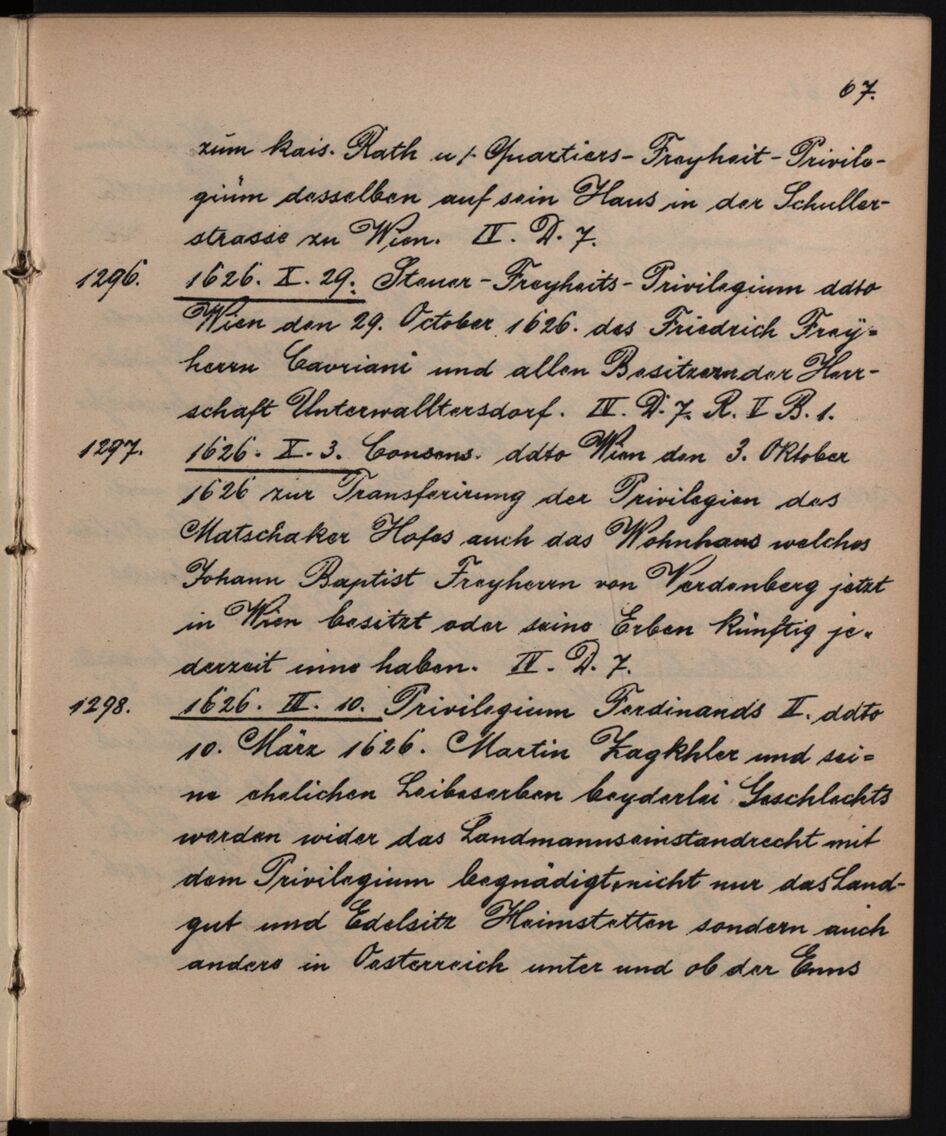 67.
zum kais. Rath u/ Quartiers-Freyheit-Privile-
gium desselben auf sein Haus in der Schuller-
strasse zu Wien. IV. D. 7.
1296. 1626. X. 29. Steuer-Freyheits-Privilegium ddto
Wien den 29. October 1626. des Friedrich Frey=
herrn Cavriani und allen Besitzern der Herr-
schaft Unterwalltersdorf. IV. D. 7. R. II B. 1.
1297. 1626. X. 3. Consens. ddto Wien den 3. Oktober
1626 zur Transferirung der Privilegien des
Matschaker Hofes auch das Wohnhaus welches
Johann Baptist Freyherrn von Verdenberg jetzt
in Wien besitzt oder seine Erben künftig je-
derzeit inne haben. IV. D. 7.
1298. 1626. III. 10. Privilegium Ferdinands II. ddto
10. März 1626. Martin Zagkhler und sei=
ne ehelichen Leibeserben beyderlei Geschlechts
werden wider das Landmannseinstandrecht mit
dem Privilegium begnädigt, nicht nur das Land-
gut und Edelsitz Heimstetten sondern auch
andere in Oesterreich unter und ob der Enns